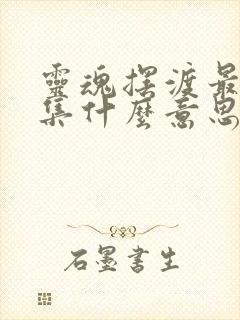 靈魂擺渡最
集什麼意思
石墨書生